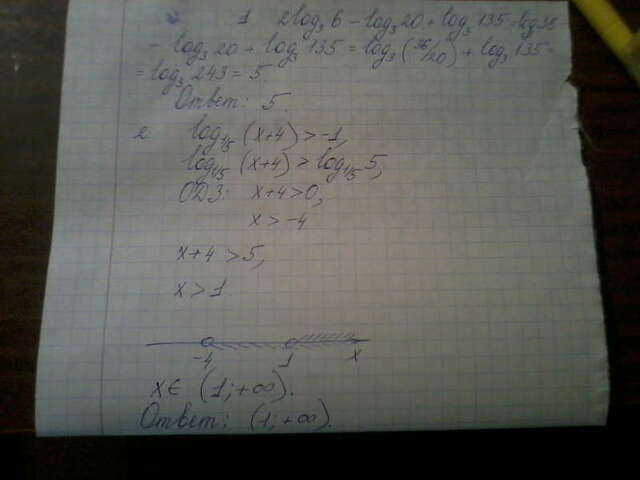 1 2log₃6 - log₃20 + log₃135 = log₃36 -
- log₃20 + log₃135 = log₃(36/20) + log₃135 =
= log₃243 = 5
Ответ: 5.
2 log₁/₅(x+4) > -1,
log₁/₅(x+4) > log₁/₅5,
ОДЗ: x+4>0,
x>-4
x+4>5,
x>1
-4 1 x
x∈ (1;+∞).
Ответ: (1;+∞).